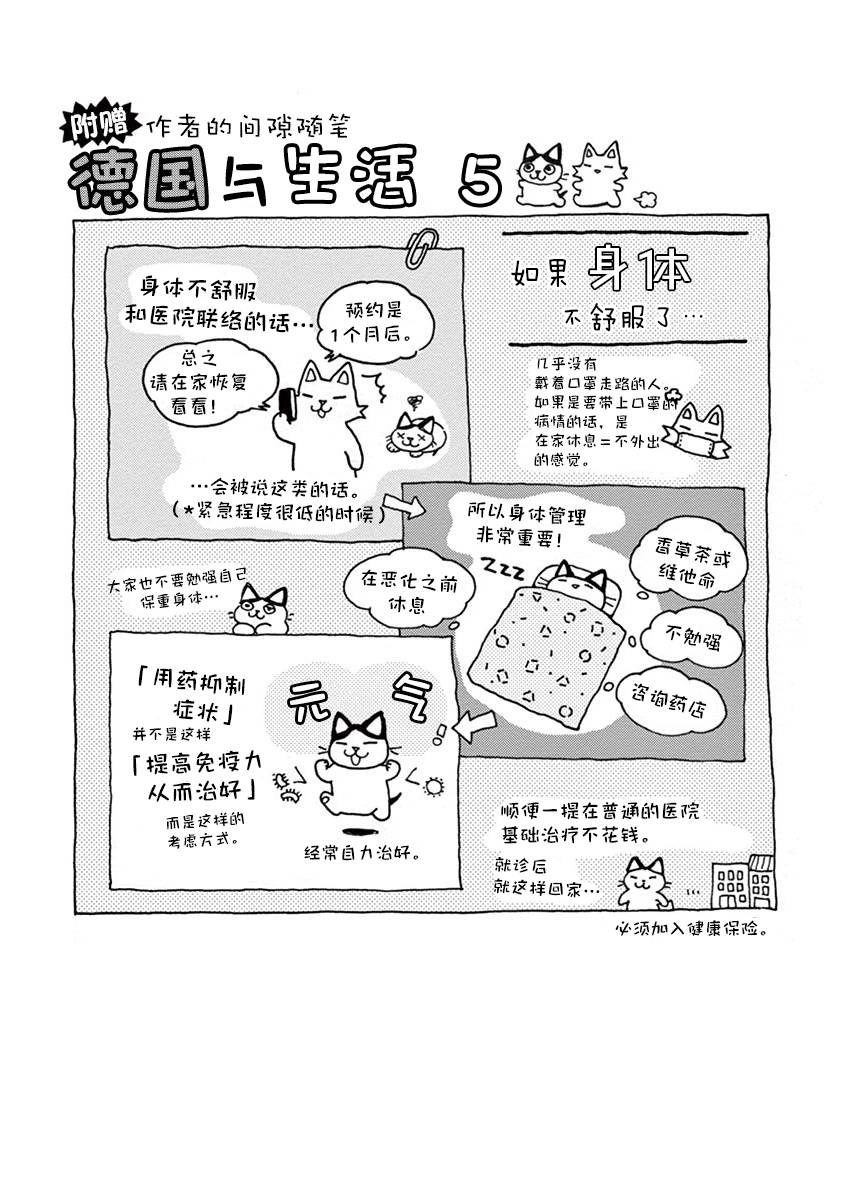 附赠
作者的间隙随笔
德国与生活 5
如果 身体
不舒服了…
身体不舒服
和医院联络的话…
预约是
1个月后。
总之
请在家恢复
看看!
…会被说这类的话。
(*紧急程度很低的时候)
几乎没有
戴着口罩走路的人。
如果是要带上口罩的
病情的话，是
在家休息=不外出
的感觉。
所以身体管理
非常重要!
zzz
在恶化之前
休息
香草茶或
维他命
不勉强
咨询药店
大家也不要勉强自己
保重身体…
「用药抑制
症状」
并不是这样
「提高免疫力
从而治好」
而是这样的
考虑方式。
元气
经常自力治好。
顺便一提在普通的医院
基础治疗不花钱。
就诊后
就这样回家…
…
必须加入健康保险。